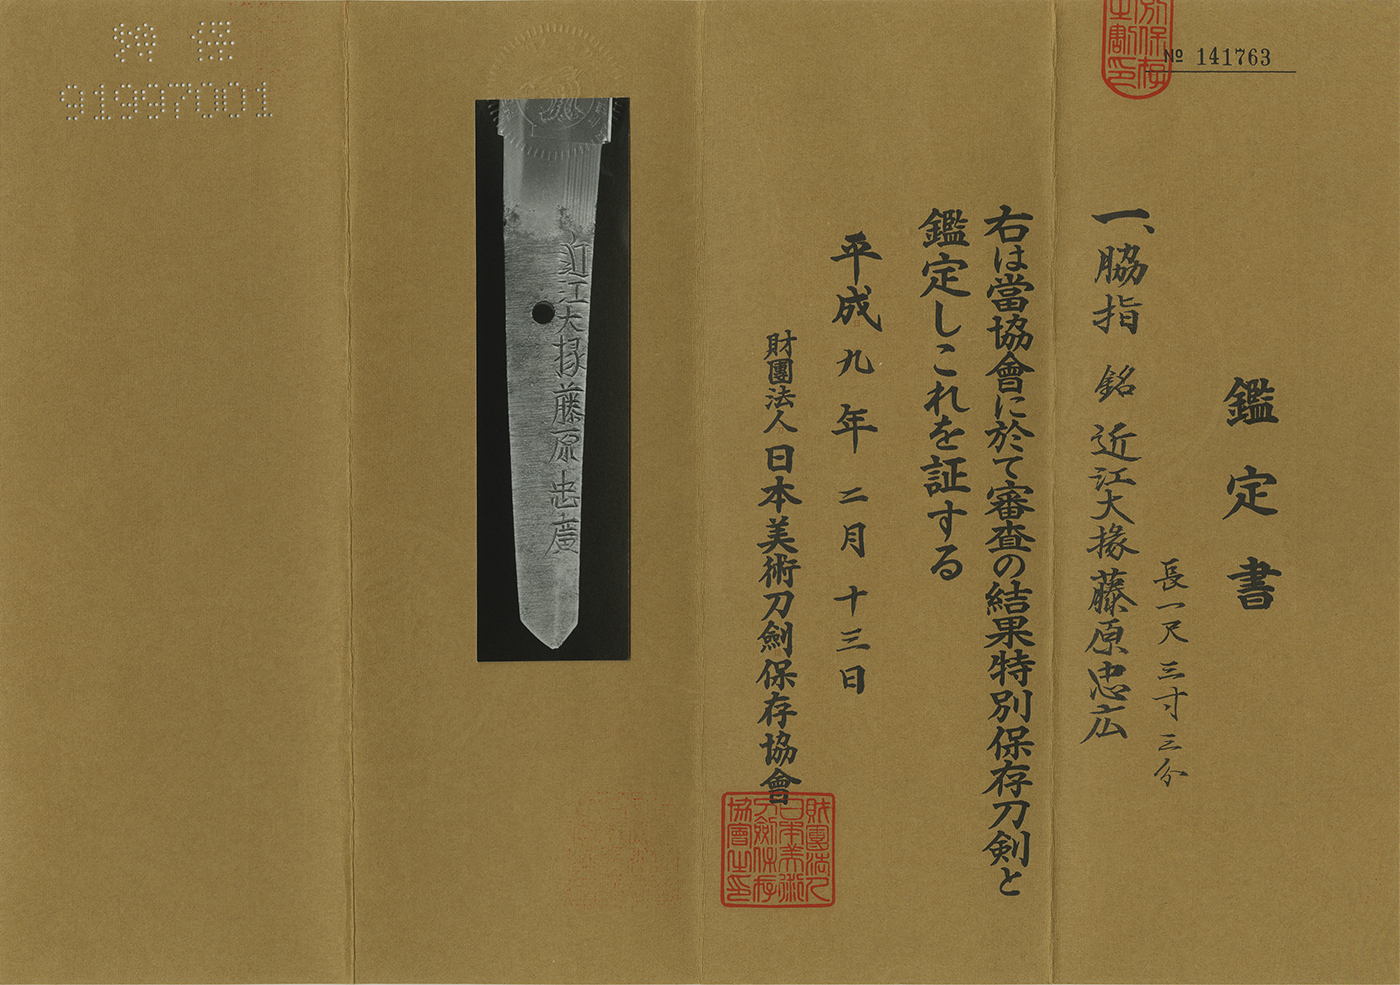 № 141763
鑑定書
一、脇指 銘 近江大掾藤原忠広
長一尺三寸三分
右は當協會に於て審査の結果特別保存刀剣と
鑑定しこれを証する
平成九年二月十三日
財團法人日本美術刀劍保存協會
財團法人日本美術刀劍保存協會之印
近江大掾藤原忠廣
特保
91997001